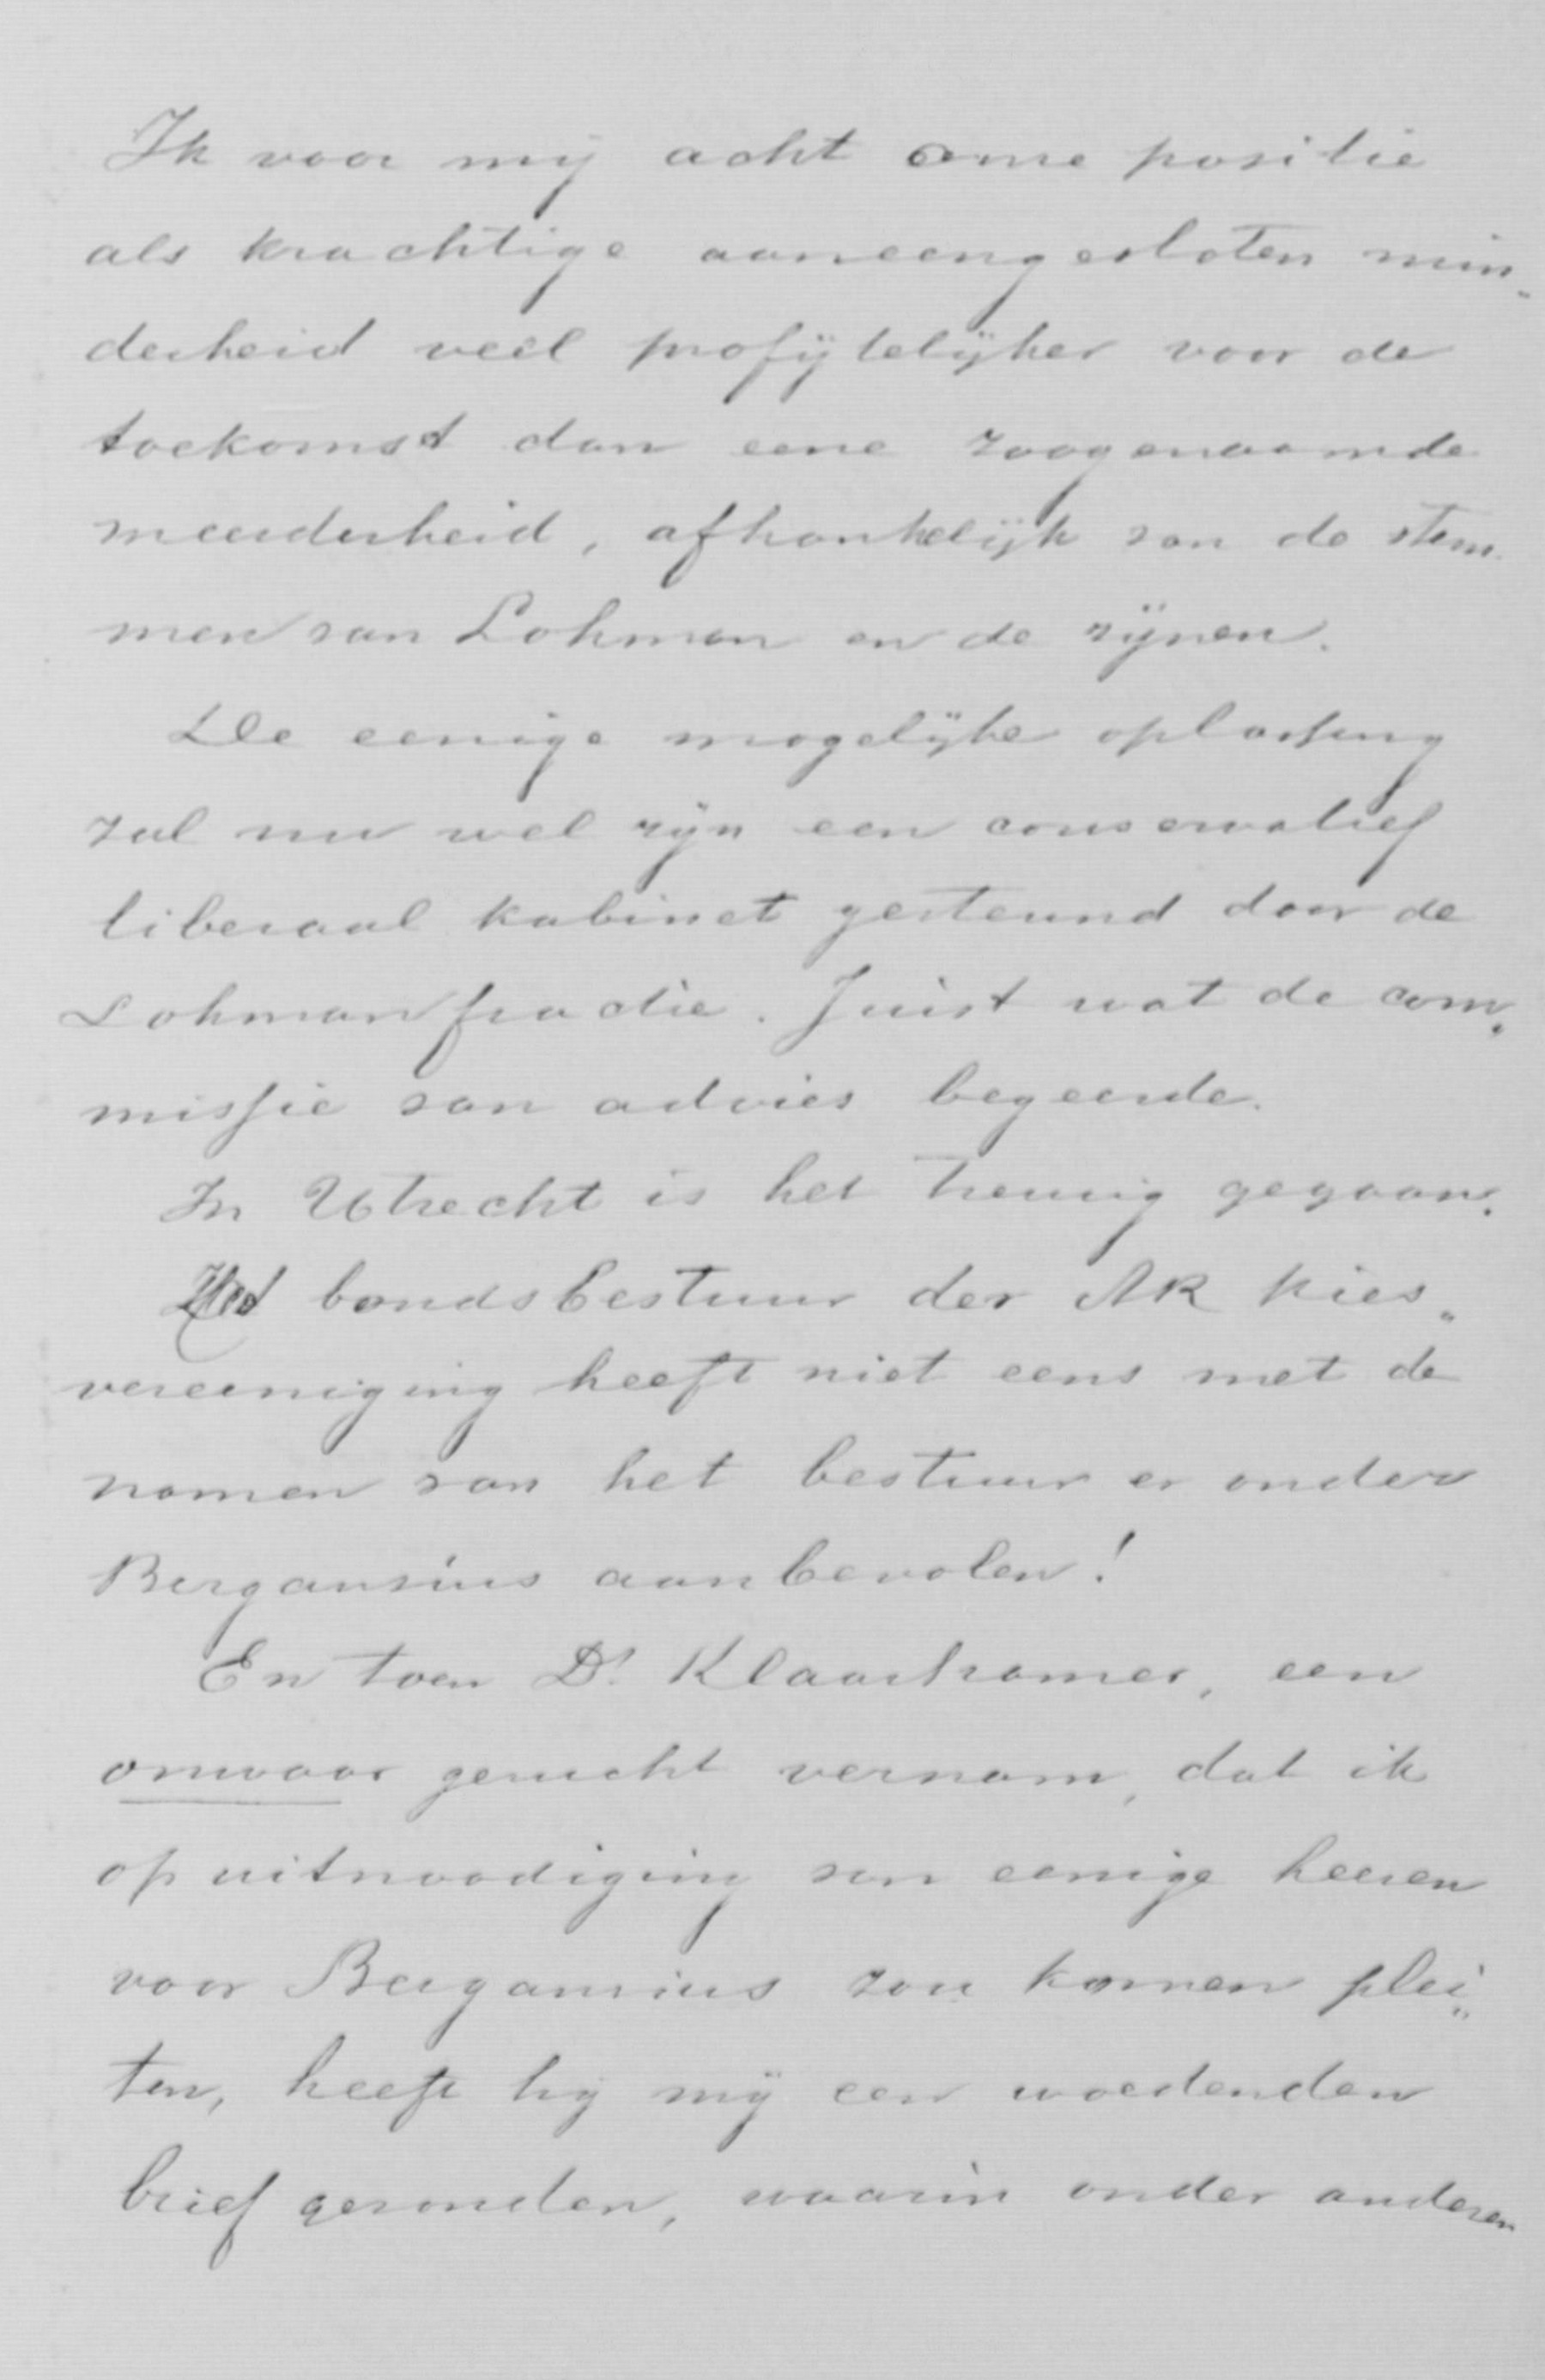 Ik voor mij acht onze positie
als krachtige aaneengesloten min-
derheid veel profijtelijker voor de
toekomst dan eene zoogenaamde
meerderheid, afhankelijk van de stem-
men van Lohman en de zijnen.
De eenige mogelijke oplossing
zal nu wel zijn een conservatief
liberaal kabinet gesteund door de
Lohmanfractie. Juist wat de com-
missie van advies begeerde.
In Utrecht is het treurig gegaan.
Het bondsbestuur der AR kies-
vereeniging heeft niet eens met de
namen van het bestuur er onder
Bergansius aanbevolen!
En toen Dr. Klaarhamer, een
onwaar gerucht vernam, dat ik
op uitnoodiging van eenige heeren
voor Bergansius zou komen plei-
ten, heeft hij mij een woedenden
brief gezonden, waarin onder anderen